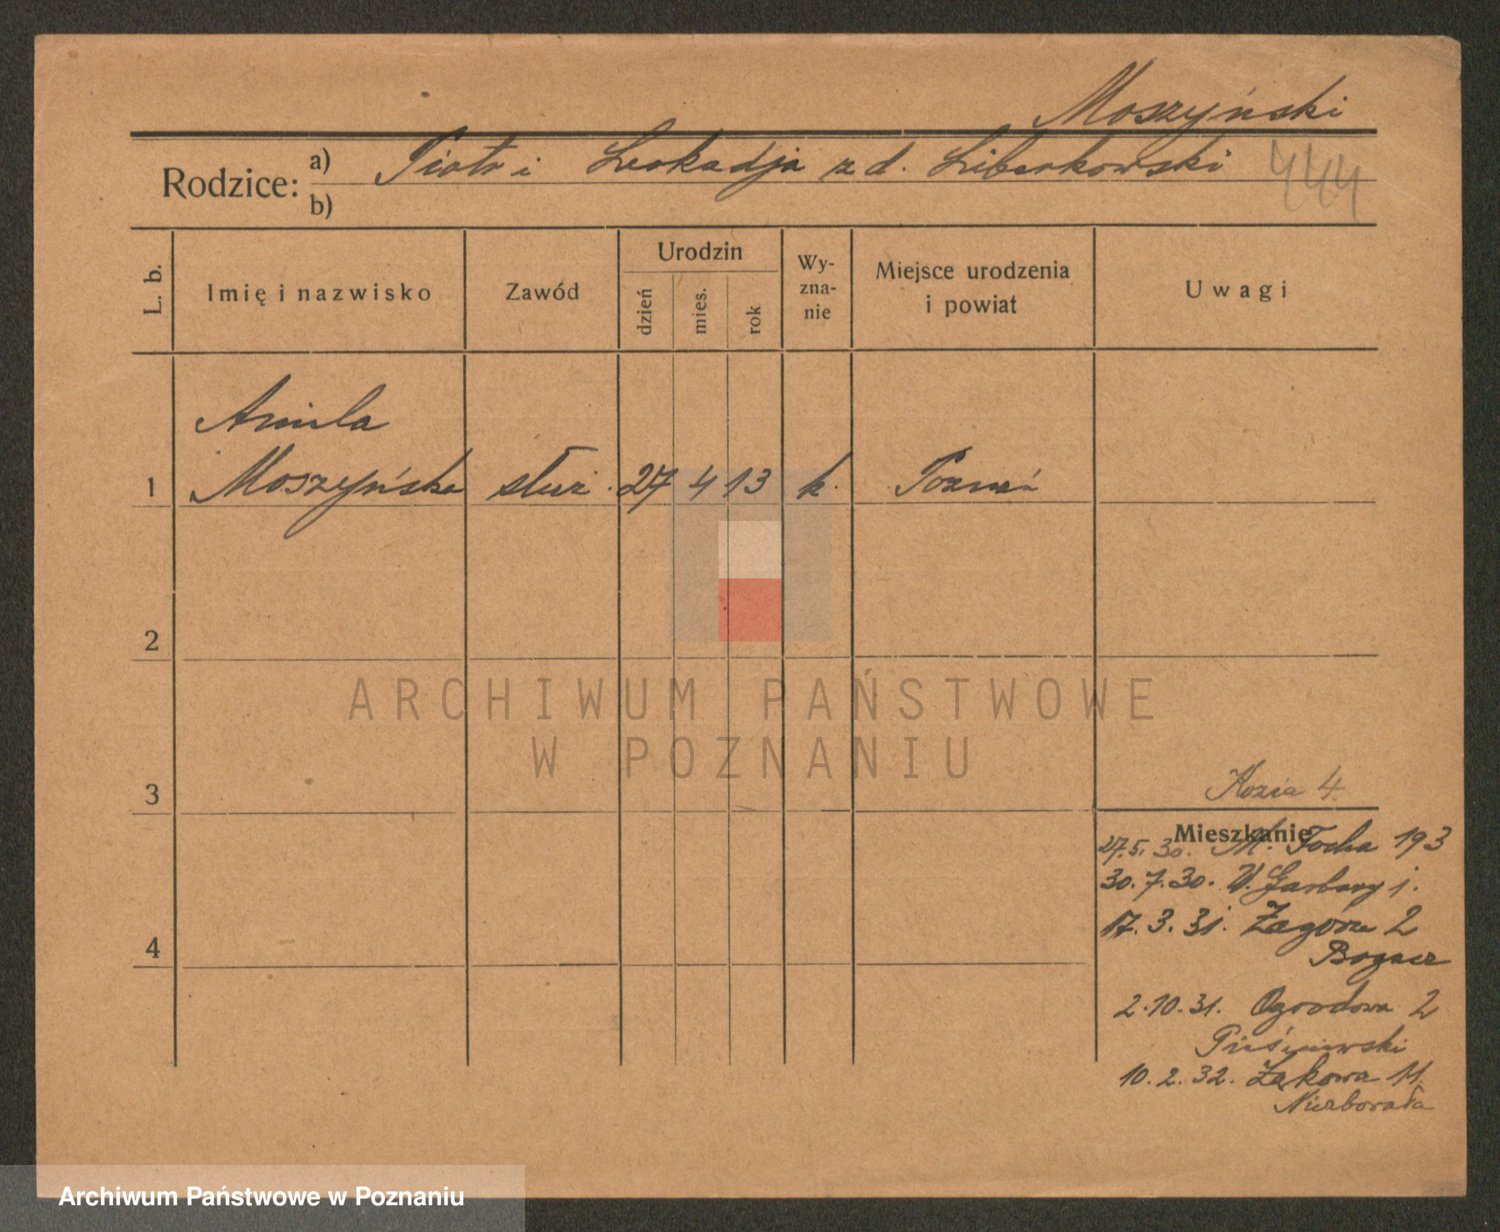 Moszyński
Rodzice: a) Piotr i Leokadja z d. Liberkowski
444
b)
L. b. Imię i nazwisko Zawód Urodzin dzień mies. rok Wy-zna-nie Miejsce urodzenia i powiat Uwagi
Aniela
1 Moszyńska służ. 27 4 13 k. Poznań
2
ARCHIWUM PAŃSTWOWE
W POZNANIU
Kozia 4
3
Mieszkanie
27.5.30. M. Focha 193
30.7.30. W. Garbary j.
17.3.31. Zagórze 2
Bogacz
4
2.10.31. Ogrodowa 2
10.2.32. Łąkowa 11.
Archiwum Państwowe w Poznaniu